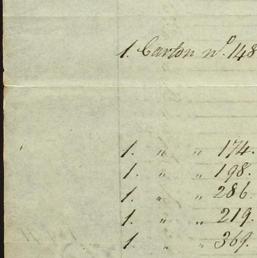 1. Carton nº. 148
1. " " 174.
1. " " 198.
1. " " 286.
1. " " 219.
1. " " 369.